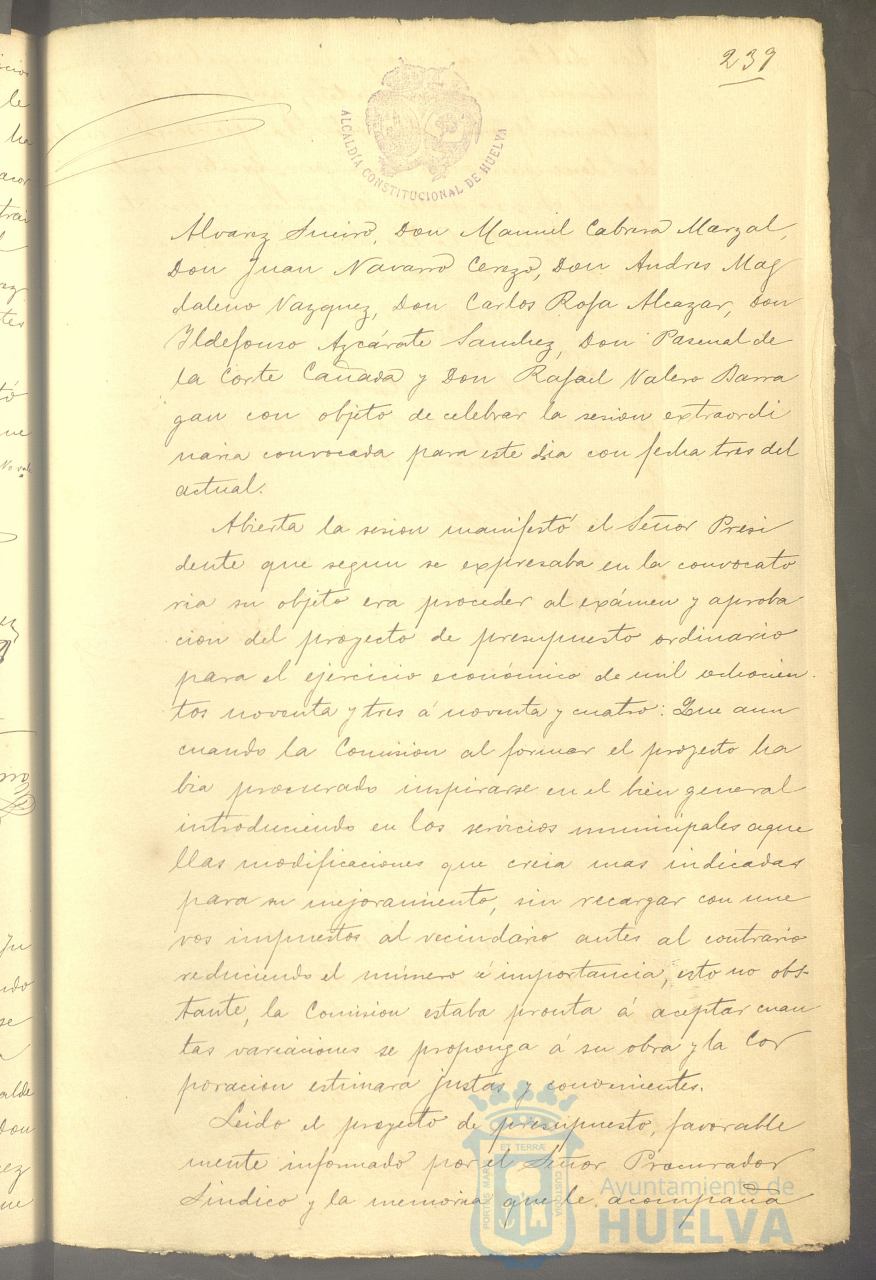 239
ALCALDÍA CONSTITUCIONAL DE HUELVA
Álvarez Sueiro, Don Manuel Cabrera Marzal,
Don Juan Navarro Cerezo, Don Andres Mag
daleno Vazquez, Don Carlos Rofa Alcazar, Don
Ildefonso Azcárate Sanchez, Don Pascual de
la Corte Cañada y Don Rafael Valero Barra
gan con objeto de celebrar la sesion extraordi
naria convocada para este dia con fecha tres del
actual.
Abierta la sesion manifestó el Señor Presi
dente que segun se expresaba en la convocato
ria su objeto era proceder al exámen y aproba
cion del proyecto de presupuesto ordinario
para el ejercicio económico de mil ochocien
tos noventa y tres á noventa y cuatro: Que aun
cuando la Comision al formar el proyecto ha
bia procurado inspirarse en el bien general
introduciendo en los servicios municipales aque
llas modificaciones que creia mas indicadas
para su mejoramiento, sin recargar con nue
vos impuestos al vecindario antes al contrario
reduciendo el número é importancia, esto no obs-
tante, la Comision estaba pronta á aceptar cuan
tas variaciones se proponga á su obra y la Cor
poracion estimara justas y convenientes.
Leido el proyecto de presupuesto, favorable
mente informado por el Señor Procurador
Sindico y la memoria que le acompaña
PORTUS MARIS ET TERRÆ CUSTODIA
Ayuntamiento de
HUELVA